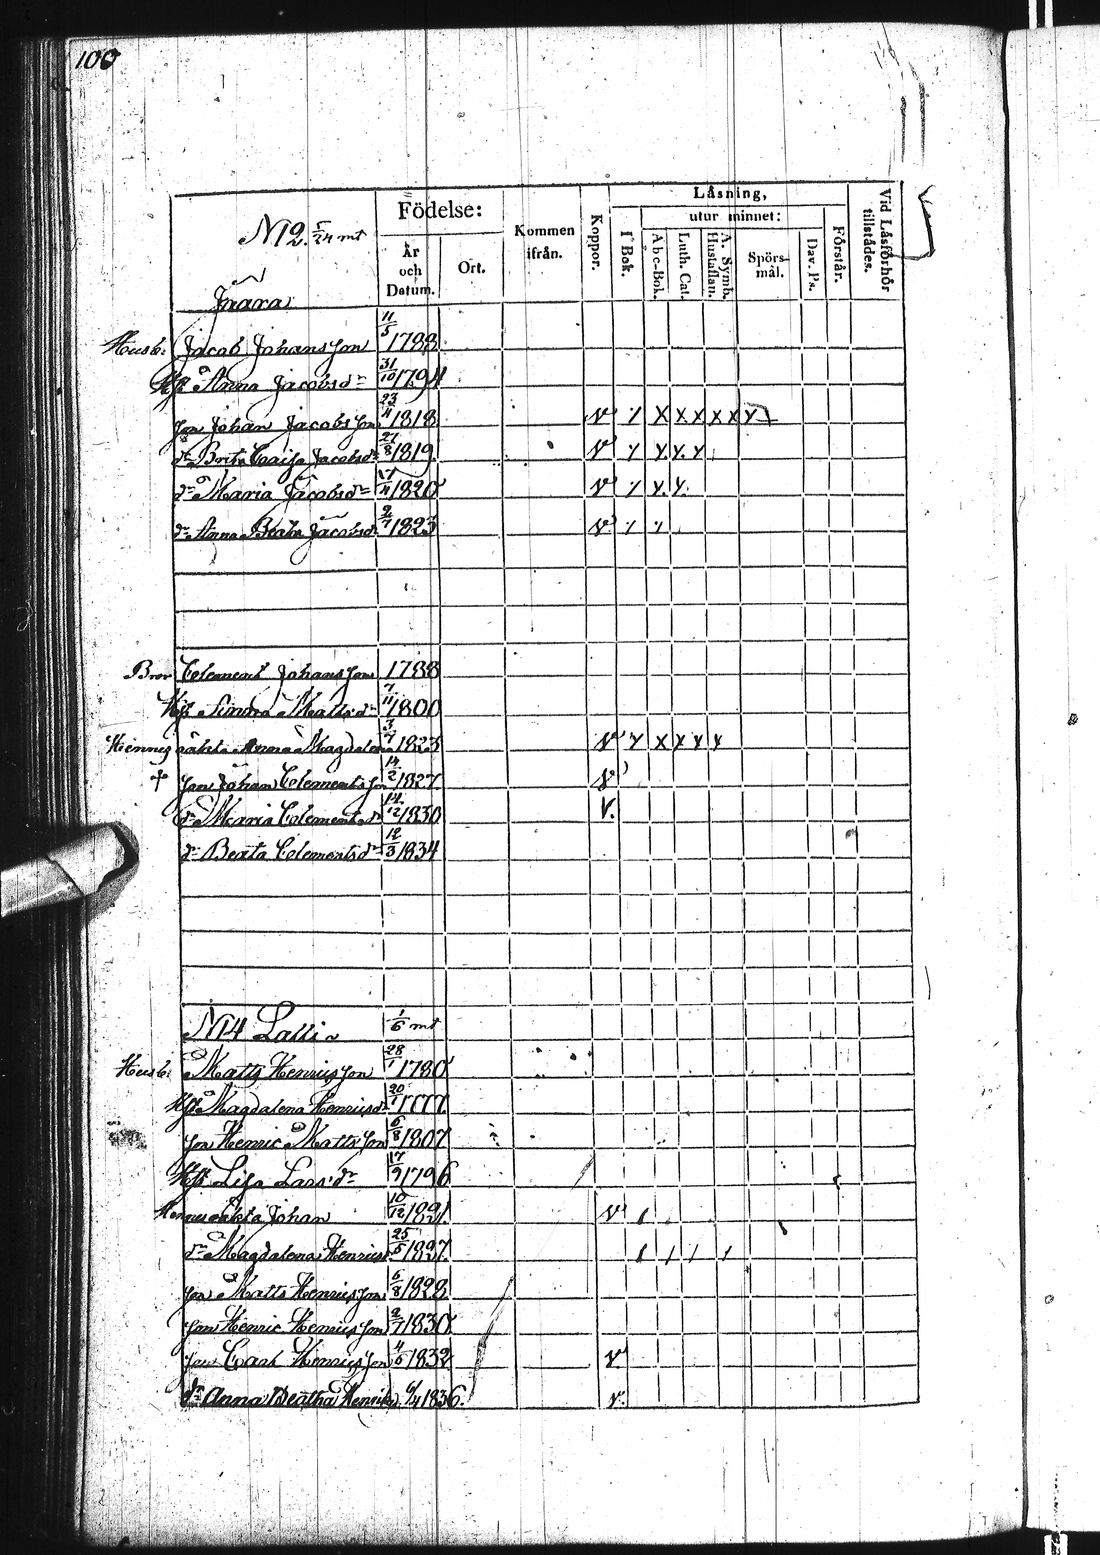 100
N12. 5/24 mt
Födelse:
År och Datum.
Ort.
Kommen ifrån.
Koppor.
Låsning,
utur minnet:
I Bok.
Abc-Bok.
Luth. Cat.
A. Symb. Hustaflan.
Spörs-mål.
Dav. Ps.
Förstår.
Vid Låsförhör tillstådes.
Husb: Jacob Johansson 11/5 1788
Hst Anna Jacobsdr 31/10 1794
Son Johan Jacobsson 23/4 1818 v / x x x x x
dr Brita Caisa Jacobsdr 21/8 1819
dr Maria Jacobsdr 17/4 1820
dr Anna Beata Jacobsdr 2/7 1823
Bror Clement Johansson 1788
Hst Mattsdr 7/11 1800
Hennes oäkta Anna Magdalena 3/7 1823
† Son Johan Clementsson 14/2 1827
dr Maria Clementsdr 14/12 1830 V.
dr Beata Clementsdr 12/3 1834
N14 Latti 1/6 mt
Husb: Matts Henricsson 28/1 1780
Hst Magdalena Henricsdr 20/1 1777
Son Henric Mattsson 6/8 1807
Hst Lisa Larsdr 17/9 1796
Hennes oäkta Johan 10/12 1821 v
dr Magdalena Henricsdr 25/5 1827
Son Matts Henricsson 6/8 1828
Son Henric Henricsson 2/7 1830
Son Carl Henricsson 4/5 1832 v
dr Anna Beatha Henriksdr 6/4 1836. v.